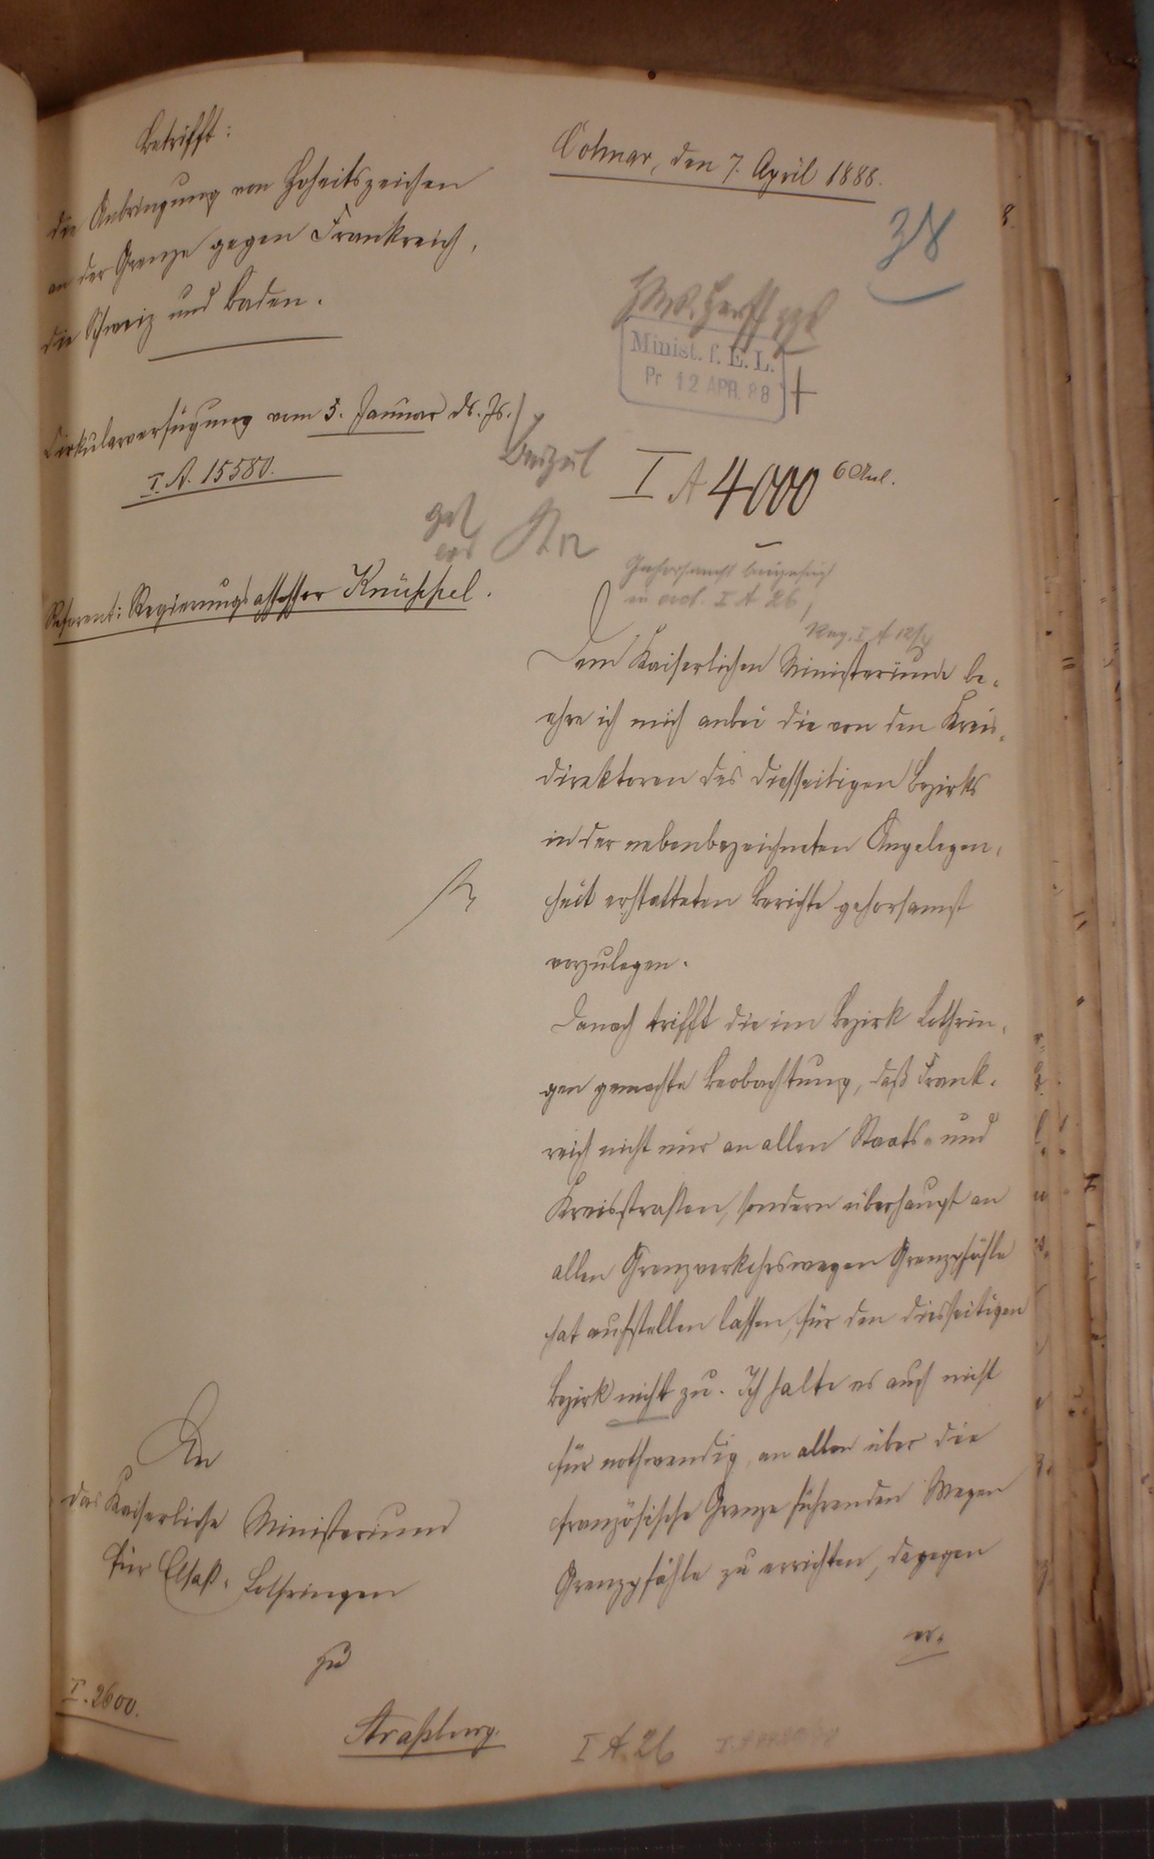 Betrifft:
die Anbringung von Hoheitszeichen
an der Grenze gegen Frankreich,
die Schweiz und Baden.
Cirkularverfügung vom 5. Januar ds. Js.
I. A. 15580.
Referent: Regierungsassessor Knüppel.
Colmar, den 7. April 1888.
38
Minist. f. E. L.
Pr 12 APR. 88
I A 4000 6 Anl.
I A 26
Dem Kaiserlichen Ministerium be-
ehre ich mich anbei die von den Kreis-
direktoren des diesseitigen Bezirks
in der nebenbezeichneten Angelegen-
heit erstatteten Berichte gehorsamst
vorzulegen.
Danach trifft die im Bezirk Lothrin-
gen gemachte Beobachtung, daß Frank-
reich nicht nur an allen Staats- und
Kreisstraßen, sondern überhaupt an
allen Grenzverkehrswegen Grenzpfähle
hat aufstellen lassen, für den diesseitigen
Bezirk nicht zu. Ich halte es auch nicht
für nothwendig, an allen über die
französische Grenze führenden Wegen
Grenzpfähle zu errichten, dagegen
An
das Kaiserliche Ministerium
für Elsaß-Lothringen
zu
Straßburg.
I. 2600.
I A. 26